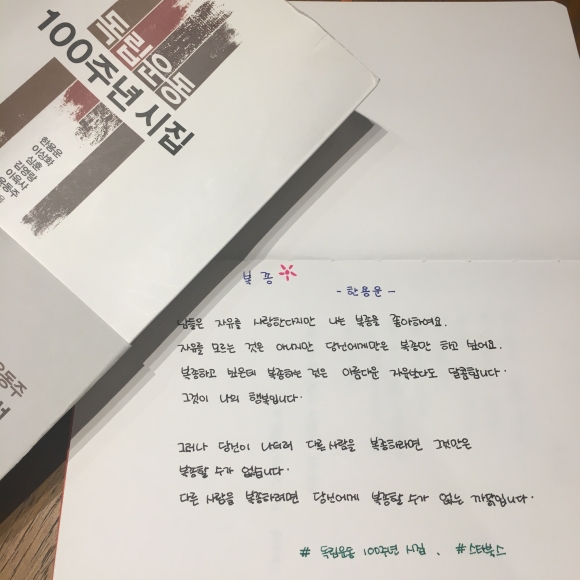 독립운동
100주년 시집
한용운
이상화
심훈
김영랑
이육사
윤동주
복종
- 한용운 -
남들은 자유를 사랑한다지만 나는 복종을 좋아하여요.
자유를 모르는 것은 아니지만 당신에게만은 복종만 하고 싶어요.
복종하고 싶은데 복종하는 것은 아름다운 자유보다도 달콤합니다.
그것이 나의 행복입니다.
그러나 당신이 나더러 다른 사람을 복종하라면 그것만은
복종할 수가 없습니다.
다른 사람을 복종하려면 당신에게 복종할 수가 없는 까닭입니다.
# 독립운동 100주년 시집. #스타북스